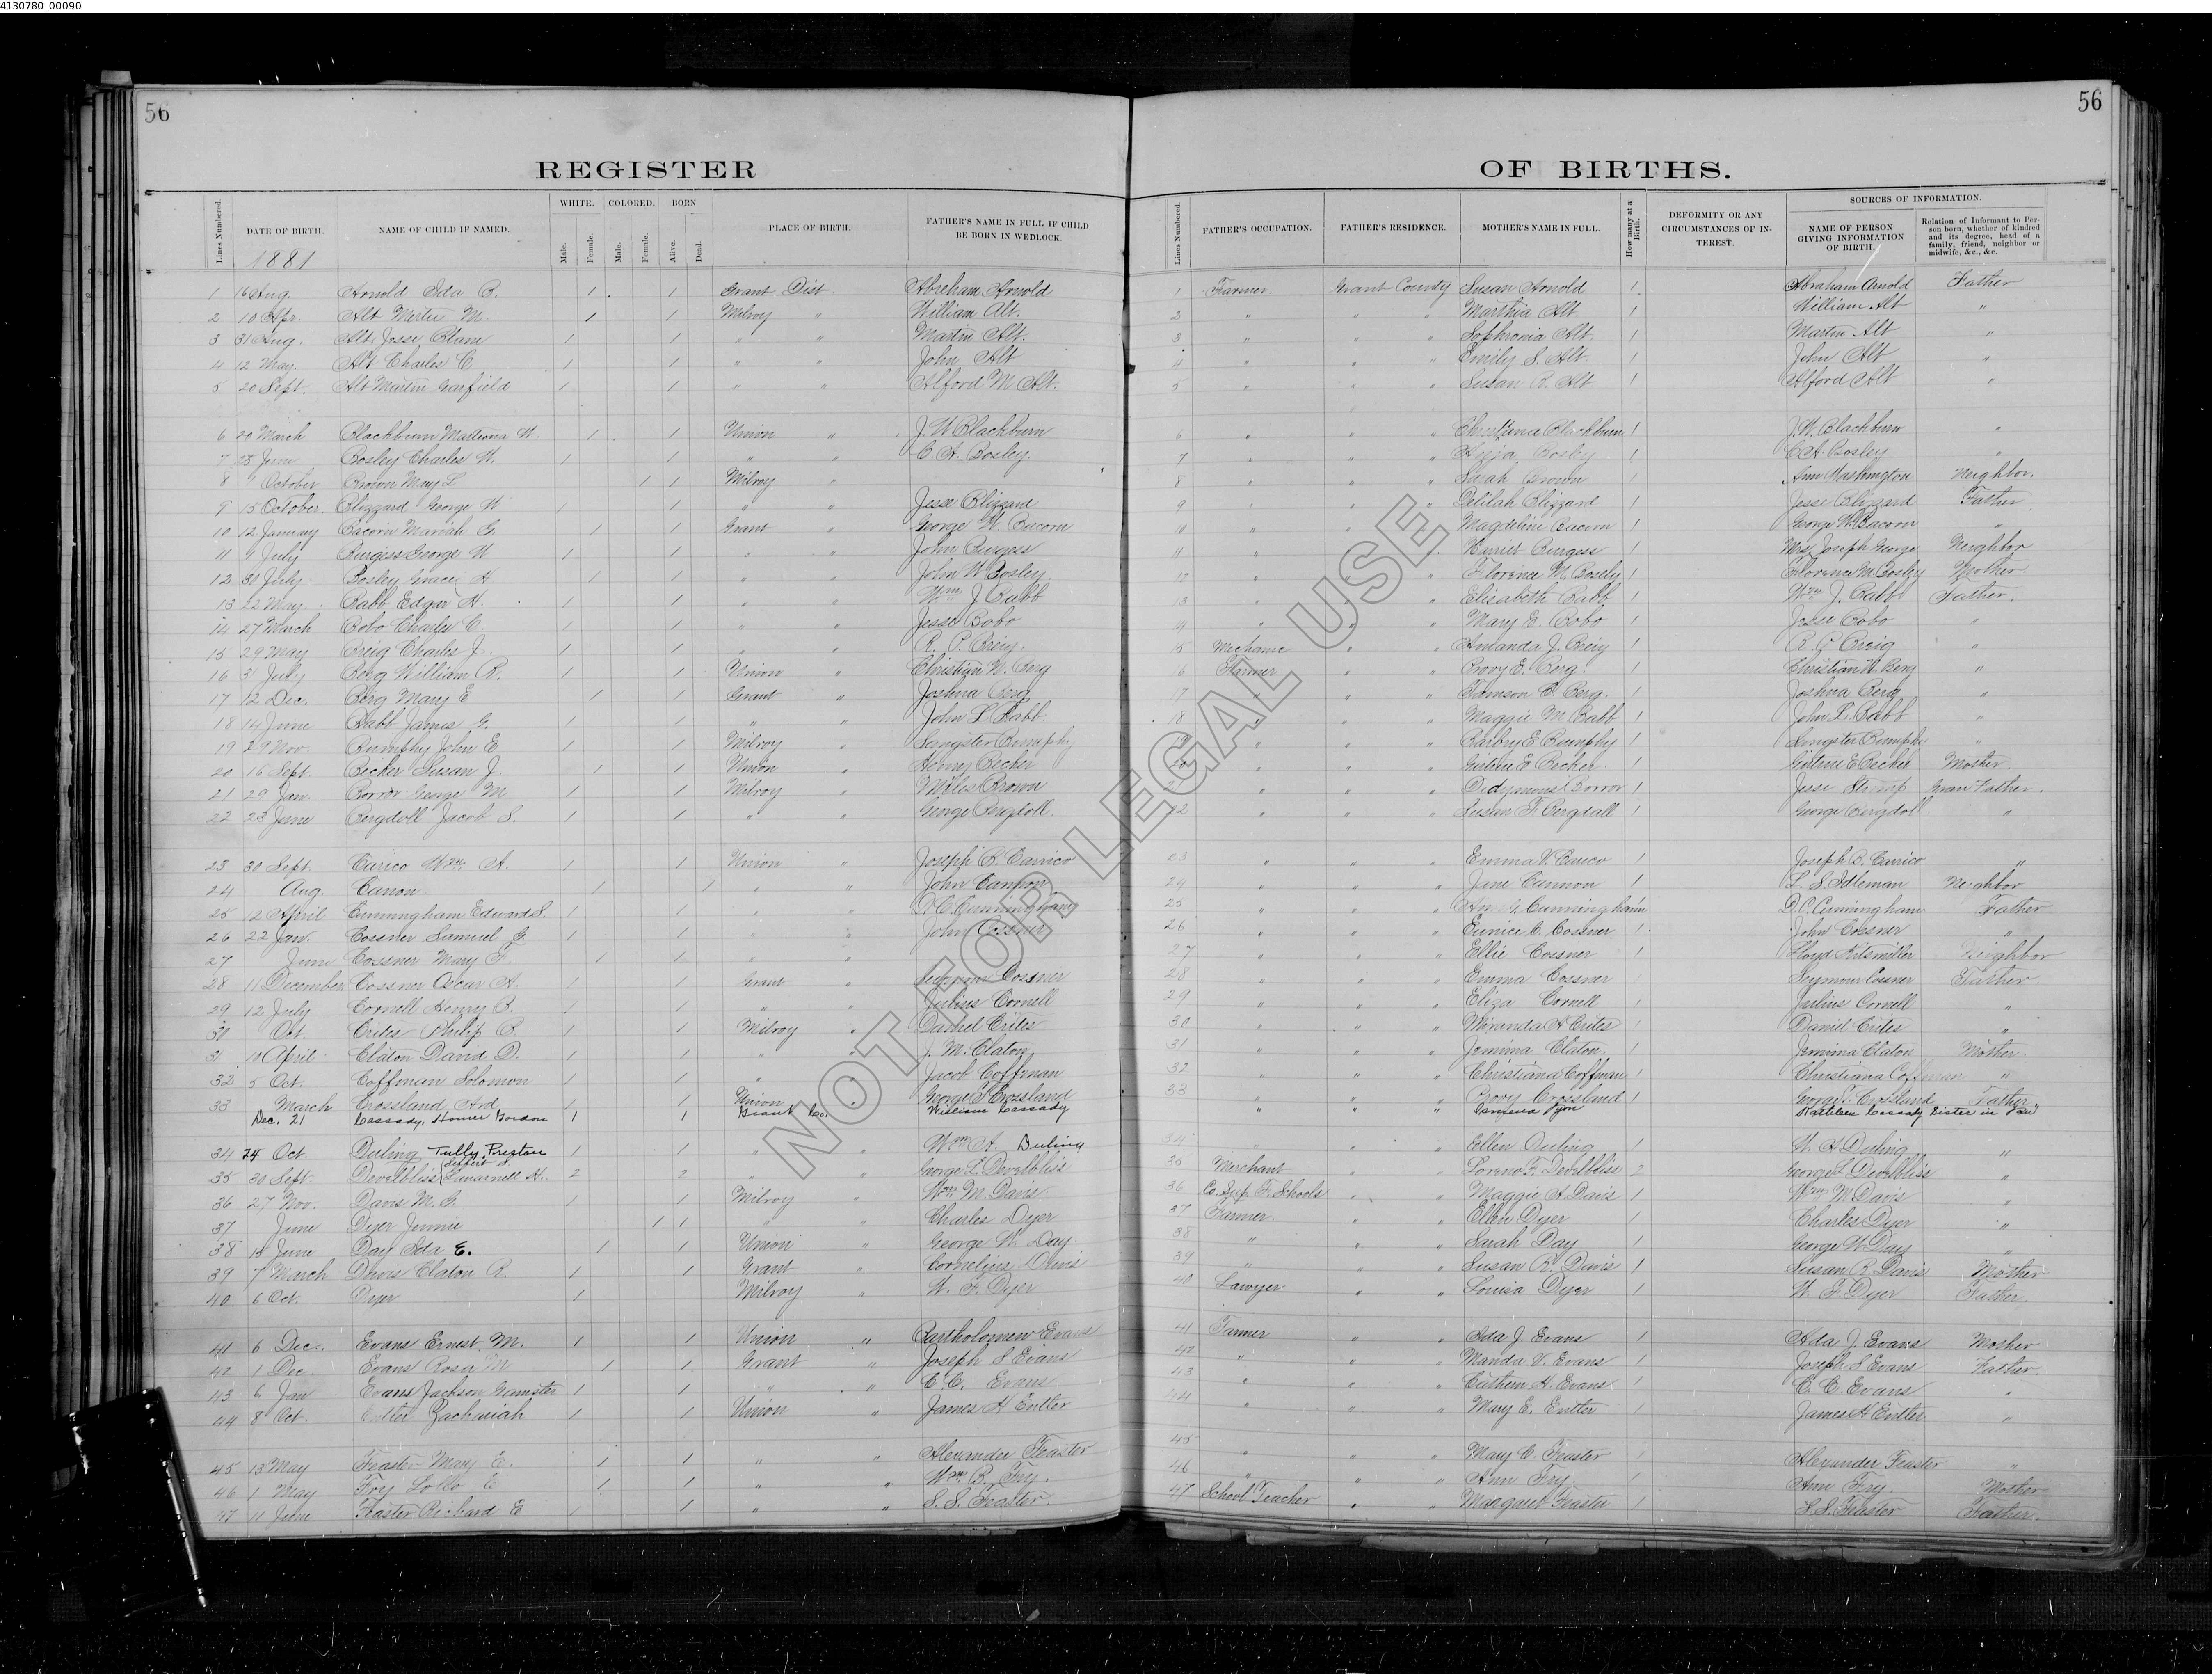 4130780_00090
56
56
REGISTER OF BIRTHS.
Lines Numbered. DATE OF BIRTH. NAME OF CHILD IF NAMED. WHITE. COLORED. BORN PLACE OF BIRTH. FATHER'S NAME IN FULL IF CHILD BE BORN IN WEDLOCK. Lines Numbered. FATHER'S OCCUPATION. FATHER'S RESIDENCE. MOTHER'S NAME IN FULL. How many at a Birth. DEFORMITY OR ANY CIRCUMSTANCES OF INTEREST. SOURCES OF INFORMATION.
Male. Female. Male. Female. Alive. Dead. NAME OF PERSON GIVING INFORMATION OF BIRTH. Relation of Informant to Person born, whether of kindred and its degree, head of a family, friend, neighbor or midwife, &c., &c.
1881
1 16 Aug. Arnold Ida B. 1 1 Grant Dist Abraham Arnold 1 Farmer Grant County Susan Arnold 1 Abraham Arnold Father
2 10 Apr. Alt M. 1 1 Milroy " William Alt. 2 " " " Marthia Alt. 1 William Alt "
3 31 Aug. Alt Jesse 1 1 " " Martin Alt. 3 " " " Sophronia Alt. 1 Martin Alt "
4 12 May. Alt Charles C 1 1 " " John Alt 4 " " " Emily S. Alt. 1 John Alt "
5 20 Sept. Alt Martin Garfield 1 1 " " Alford M Alt. 5 " " " Susan R. Alt 1 Alford Alt "
6 20 March Blackburn 1 1 Union " J. W Blackburn 6 " " " Christiana Blackburn 1 J. W. Blackburn "
7 28 June Bosley Charles W. 1 1 " " C. A. Bosley. 7 " " " Bosley 1 C. A. Bosley "
8 October Brown May L 1 1 Milroy " 8 " " " Sarah Brown 1 Ann Washington Neighbor.
9 15 October. Blizzard George W 1 1 " " Jesse Blizzard 9 " " " Delilah Blizzard 1 Jesse Blizzard Father
10 12 January Bacorn Mariah G. 1 1 Grant " George W. Bacorn 10 " " " Magdeline Bacorn 1 George W. Bacorn "
11 9 July Burgiss George W 1 1 " " John Burgess 11 " " " Harriet Burgess 1 Mrs Joseph George Neighbor
12 30 July Bosley Gracie A 1 1 " " John W Bosley 12 " " " Florence M. Bosely 1 Florence M. Bosley Mother
13 22 May. Babb Edgar H. 1 1 " " Wm J Babb 13 " " " Elisabeth Babb 1 Wm J. Babb Father.
14 27 March Bobo Charles C 1 1 " " Jesse Bobo 14 " " " Mary E. Bobo 1 Jesse Bobo "
15 29 May Breig Charles J. 1 1 " " R. P. Breig. 15 Mechanic " " Amanda J. Breig 1 "
16 31 July Berg William R. 1 1 Union " Christian W. Berg 16 Farmer " " E. Berg 1 Christian W. Berg "
17 12 Dec. Berg Mary E 1 1 Grant " Joshua Berg 17 " " " Berg. 1 Joshua Berg "
18 14 June Babb James G. 1 1 " " John L Babb. 18 " " " Maggie M. Babb 1 John L. Babb "
19 29 Nov. Bumphy John E 1 1 Milroy " Sangster Bumphy 19 " " " Barbry E Bumphy 1 Sangster Bumphy "
20 16 Sept. Becker Susan J. 1 1 Union " Becker 20 " " " Becker 1 Becker Mother.
21 29 Jan. Borror George M 1 1 Milroy " Miles Brown " " " Didymous Borror 1 Jesse Gran Father.
22 23 June Bergdoll Jacob S. 1 1 " " George Bergdoll. 22 " " " Susan F. Bergdall 1 George Bergdoll "
23 30 Sept. Carico Wm A. 1 1 Union " Joseph B. Carrico 23 " " " Emma V. 1 Joseph B. Carrico "
24 Aug. Canon 1 1 " " John Cannon 24 " " " Jane Cannon 1 L. S. Idleman Neighbor
25 12 April Cunningham Edward S. 1 1 " " D. C. Cunningham 25 " " " Cunningham D. C. Cunningham Father
26 22 Jan. Cossner Samuel G. 1 1 " " John Cossner 26 " " " Eunice C. Cossner 1 John Cossner "
27 June Cossner Mary F. 1 1 " " 27 " " " Ellie Cossner 1 Lloyd Kitsmiller Neighbor
28 11 December Cossner Oscar A. 1 1 Grant " Seymour Cossner 28 " " " Emma Cossner Seymour Cosner Father.
29 12 July Cornell Henry B. 1 1 " " Julius Cornell 29 " " " Eliza Cornell 1 Julius Cornell "
30 Oct. Crites Philip B. 1 1 Milroy " Daniel Crites 30 " " " Miranda A Crites 1 Daniel Crites "
31 10 April Claton David D. 1 1 " " J. M. Claton 31 " " " Jemima Claton 1 Jemima Claton Mother.
32 5 Oct. Coffman Solomon 1 1 " " Jacob Coffman 32 " " " Christiana Coffman 1 Christiana Coffman "
33 March Crossland Ard 1 1 Union " George S Crossland 33 " " " Crossland 1 George S. Crossland Father.
Dec. 21 Cassady, Homer Gordon 1 1 Grant Co. William Cassady " " " Cassady Sister in law
34 24 Oct. Duling Tully Preston 1 1 " " Wm A. Duling 34 " " " Ellen Duling 1 W. A Duling "
35 30 Sept. Develbliss 2 2 " " George L. Develbliss 35 Merchant " " F. Develbliss 2 George L Develbliss "
36 27 Nov. Davis M. G. 1 1 Milroy " Wm M. Davis 36 Co. Sup. F. Schools " " Maggie A. Davis 1 Wm M Davis "
37 June Dyer Jennie 1 1 " " Charles Dyer 37 Farmer. " " Ellen Dyer 1 Charles Dyer "
38 14 June Day Ida E. 1 1 Union " George W. Day 38 " " " Sarah Day 1 George W. Day "
39 7 March Davis Claton R. 1 1 Grant " Cornelius Davis 39 " " " Susan R. Davis 1 Susan R. Davis Mother
40 6 Oct. Dyer 1 Milroy " W. F. Dyer 40 Lawyer " " Louisa Dyer 1 W. F. Dyer Father.
41 6 Dec. Evans Ernest M. 1 1 Union " Bartholomew Evans 41 Farmer " " Ida J. Evans 1 Ada J. Evans Mother
42 1 Dec Evans Rosa M 1 1 Grant " Joseph S Evans 42 " " " Manda V. Evans 1 Joseph S Evans Father.
43 6 Jan Evans Jackson Gamster 1 1 " " C. C. Evans 43 " " " H. Evans 1 C. C. Evans "
44 8 Oct. Entler Zachariah 1 1 Union " James H Entler 44 " " " Mary E. Entler 1 James H Entler "
45 13 May Feaster Mary E. 1 1 " " Alexander Feaster 45 " " " Mary C. Feaster 1 Alexander Feaster "
46 1 May Fry E 1 1 " " Wm B. Fry. 46 " " " Ann Fry. 1 Ann Fry Mother
47 11 June Feaster Richard E 1 1 " " S. S. Feaster. 47 School Teacher " " Margaret Feaster 1 S. S. Feaster Father.
NOT FOR LEGAL USE